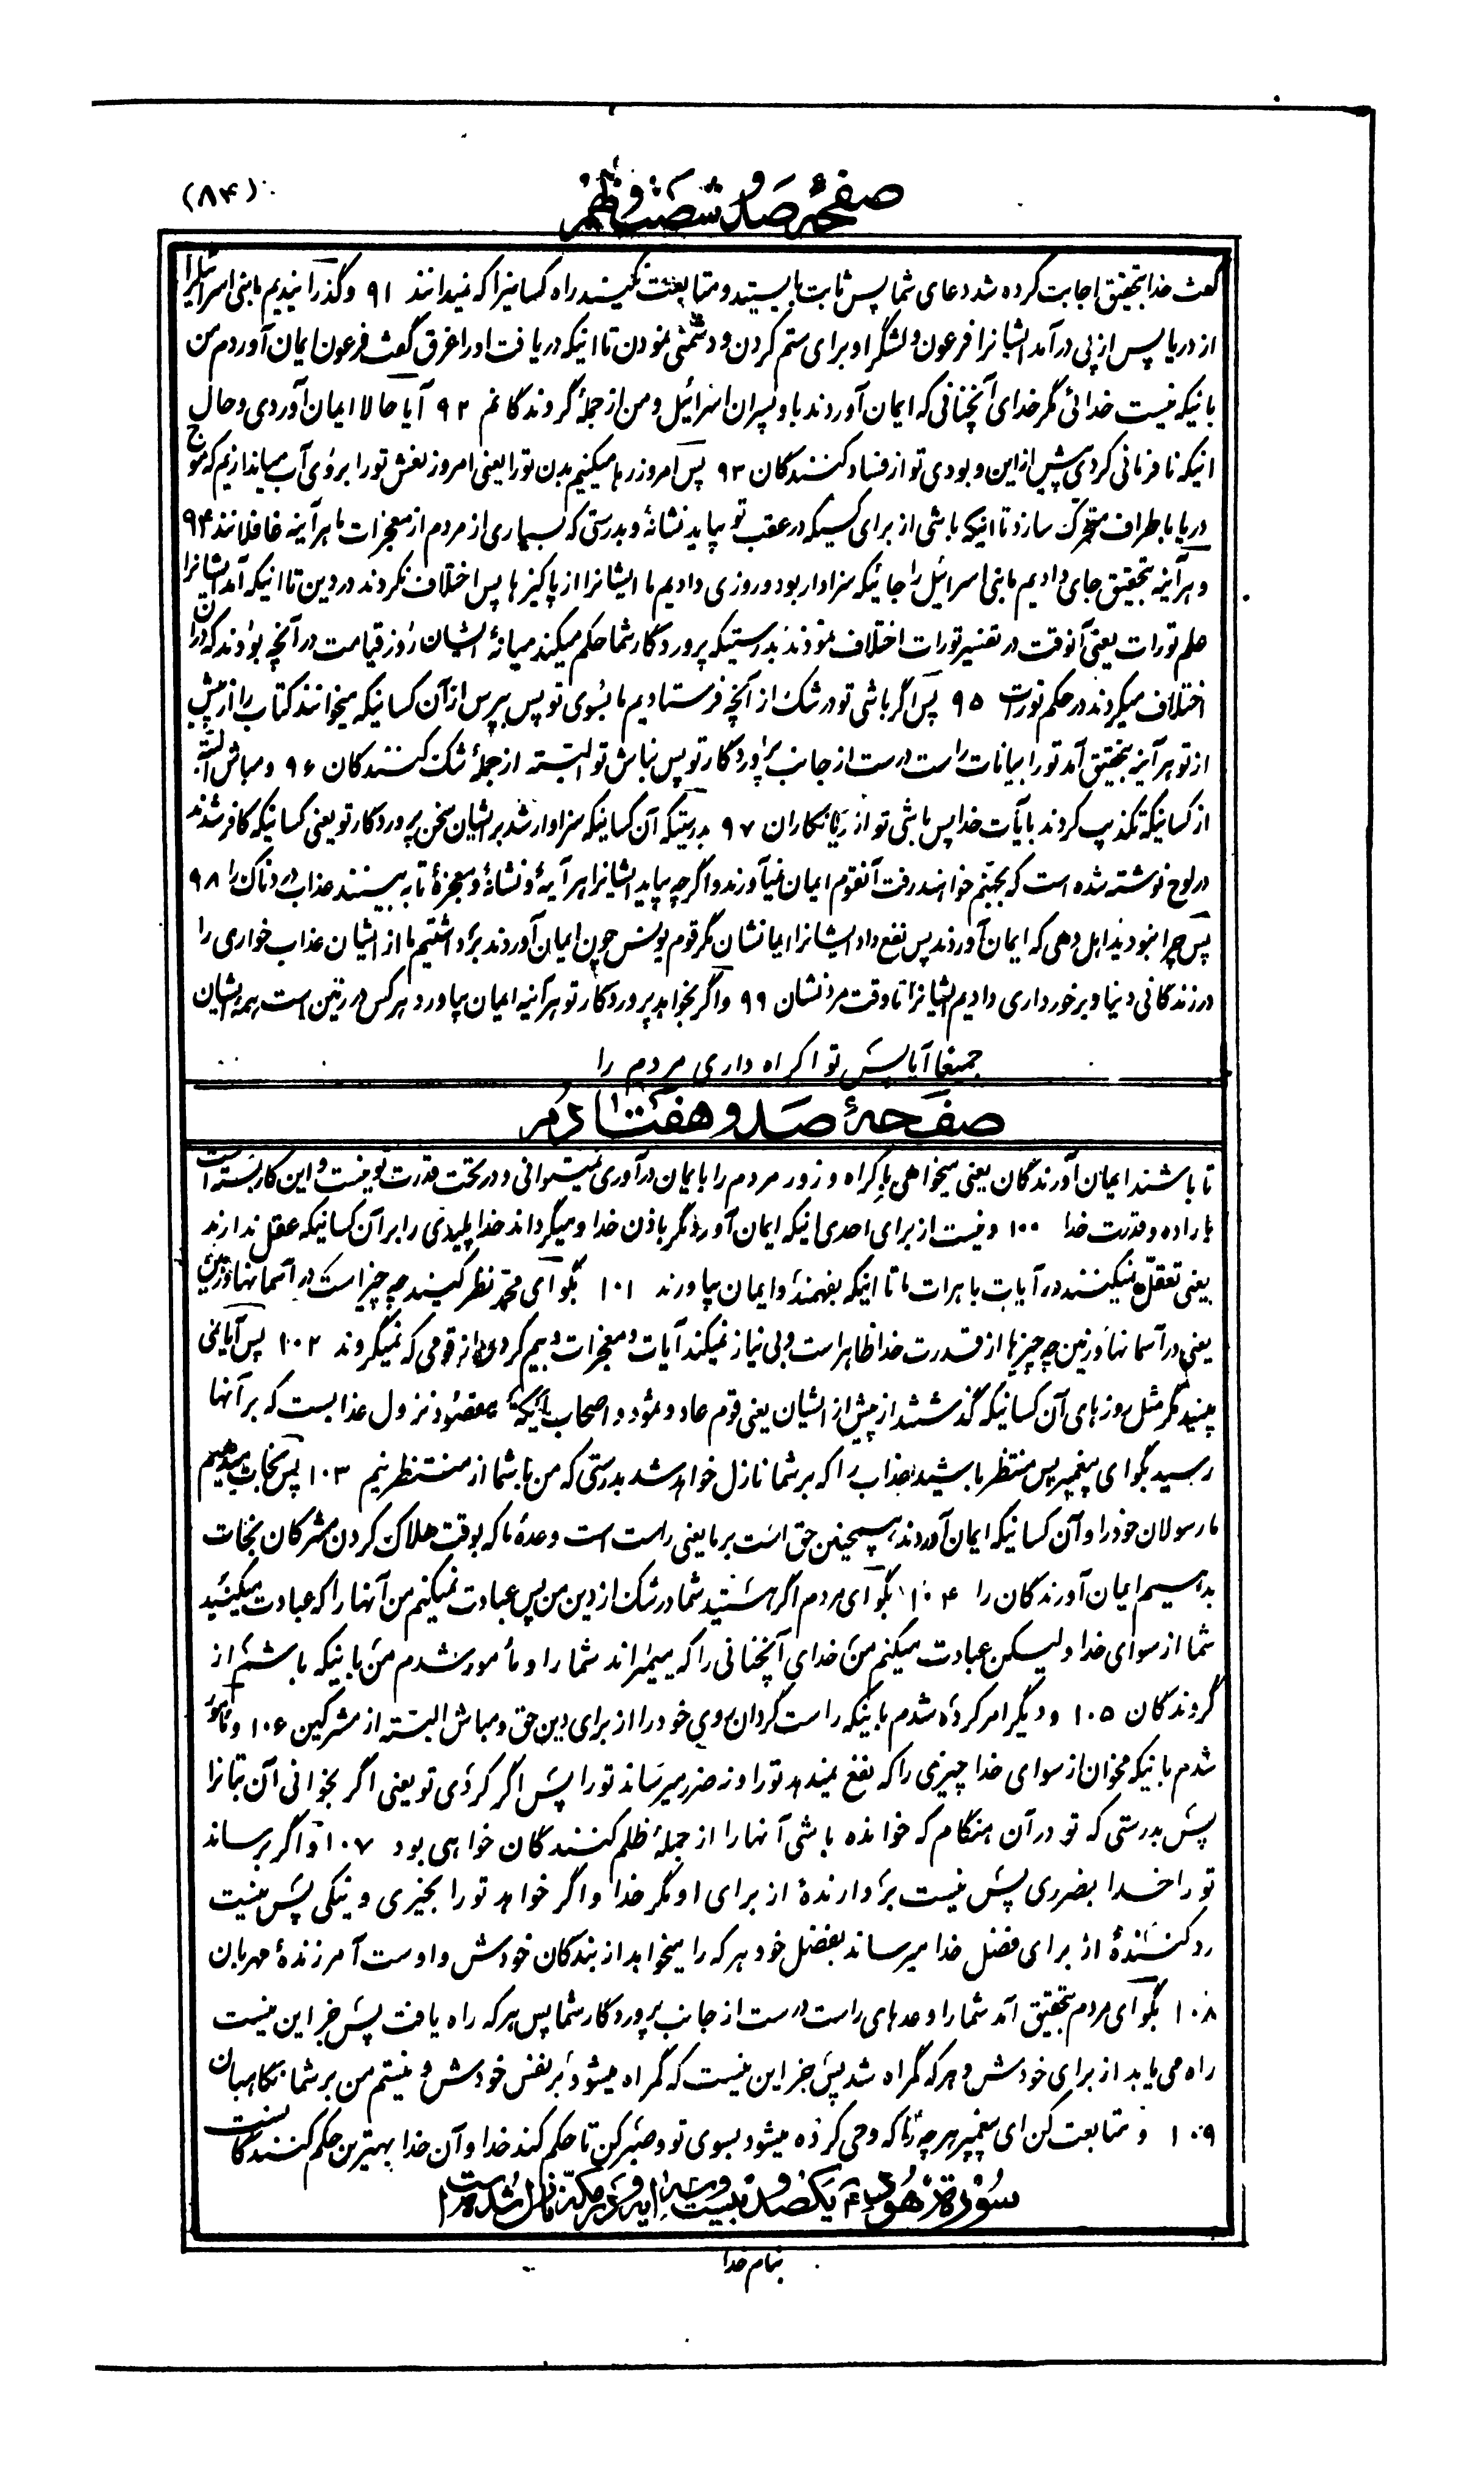 (۸۴)
صفحهٔ صد و شصت و نهم
گفت خدا بتحقیق اجابت کرده شد دعای شما پس ثابت بایستید و متابعت نکنید راه کسانیرا که نمیدانند ۹۱ و گذرانیدیم ما بنی اسرائیلرا
از دریا پس از پی در آمد ایشانرا فرعون و لشگر او برای ستم کردن و دشمنی نمودن تا اینکه دریافت اورا غرق گفت فرعون ایمان آوردم من
باینکه نیست خدائی مگر خدای آنچنانی که ایمان آوردند باو پسران اسرائیل و من از جملهٔ گروندگانم ۹۲ آیا حالا ایمان آوردی و حال
اینکه نافرمانی کردی پیش از این و بودی تو از فساد کنندگان ۹۳ پس امروز رها میکنیم بدن تورا یعنی امروز نعش تورا بروی آب میاندازیم که موج
دریا باطراف متحرک سازد تا اینکه باشی از برای کسیکه در عقب تو بیاید نشانهٔ و بدرستی که بسیاری از مردم از معجزات ما هر آینه غافلانند ۹۴
و هر آینه بتحقیق جای دادیم ما بنی اسرائیل را جائیکه سزاوار بود و روزی دادیم ما ایشانرا از پاکیزها پس اختلاف نکردند در دین تا اینکه آمد ایشانرا
علم تورات یعنی آنوقت در تفسیر تورات اختلاف نمودند بدرستیکه پروردگار شما حکم میکند میانهٔ ایشان روز قیامت در آنچه بودند که در آن
اختلاف میکردند در حکم تورات ۹۵ پس اگر باشی تو در شک از آنچه فرستادیم ما بسوی تو پس بپرس از آن کسانیکه میخوانند کتاب را از پیش
از تو هر آینه بتحقیق آمد تورا بیانات راست درست از جانب پروردگار تو پس نباش تو البته از جملهٔ شک کنندگان ۹۶ و مباش البته
از کسانیکه تکذیب کردند بآیات خدا پس باشی تو از زیانکاران ۹۷ بدرستیکه آن کسانیکه سزاوار شد بر ایشان سخن پروردگار تو یعنی کسانیکه کافر شدند
در لوح نوشته شده است که بجهنم خواهند رفت آنقوم ایمان نمیآورند و اگر چه بیاید ایشانرا هر آیهٔ و نشانهٔ و معجزهٔ تا به بینند عذاب دردناک را ۹۸
پس چرا نبودند اهل دهی که ایمان آوردند پس نفع داد ایشانرا ایمانشان مگر قوم یونس چون ایمان آوردند برداشتیم ما از ایشان عذاب خواری را
در زندگانی دنیا و برخورداری دادیم ایشانرا تا وقت مردنشان ۹۹ و اگر بخواهد پروردگار تو هر آینه ایمان بیاورد هر کس در زمین است همهٔ ایشان
جمیعا آیا پس تو اکراه داری مردم را
صفحهٔ صد و هفتادم
تا باشند ایمان آورندگان یعنی میخواهی باکراه و زور مردم را بایمان در آوری نمیتوانی و در تحت قدرت تو نیست و این کار بسته است
باراده و قدرت خدا ۱۰۰ و نیست از برای احدی اینکه ایمان آورد مگر باذن خدا و میگرداند خدا پلیدی را بر آن کسانیکه عقل ندارند
یعنی تعقل نمیکنند در آیات باهرات ما تا اینکه بفهمند و ایمان بیاورند ۱۰۱ بگو ای محمد نظر کنید چه چیز است در آسمانها و زمین
یعنی در آسمانها و زمین چه چیزها از قدرت خدا ظاهر است و بی نیاز نمیکند آیات و معجزات و بیم کردن از قومی که نمیگروند ۱۰۲ پس آیا نمی
بینید مگر مثل روزهای آن کسانیکه گذشتند از پیش از ایشان یعنی قوم عاد و ثمود و اصحاب ایکه مقصود نزول عذابست که بر آنها
رسید بگو ای پیغمبر پس منتظر باشید عذاب را که بر شما نازل خواهد شد بدرستی که من با شما از منتظرینم ۱۰۳ پس نجات میدهیم
ما رسولان خود را و آن کسانیکه ایمان آوردند همچنین حق است بر ما یعنی راست است وعدهٔ ما که بوقت هلاک کردن مشرکان نجات
بدهیم ایمان آورندگان را ۱۰۴ بگو ای مردم اگر هستید شما در شک از دین من پس عبادت نمیکنم من آنها را که عبادت میکنید
شما از سوای خدا و لیکن عبادت میکنم من خدای آنچنانی را که میمیراند شما را و مأمور شدم من باینکه باشم از
گروندگان ۱۰۵ و دیگر امر کرده شدم باینکه راست گردان روی خود را از برای دین حق و مباش البته از مشرکین ۱۰۶ و مأمور
شدم باینکه مخوان از سوای خدا چیزی را که نفع نمیدهد تورا و نه ضرر میرساند تورا پس اگر کردی تو یعنی اگر بخوانی آن بتانرا
پس بدرستی که تو در آن هنگام که خوانده باشی آنها را از جملهٔ ظلم کنندگان خواهی بود ۱۰۷ و اگر برساند
تورا خدا بضرری پس نیست بردارندهٔ از برای او مگر خدا و اگر خواهد تورا بخیری و نیکی پس نیست
رد کنندهٔ از برای فضل خدا میرساند بفضل خود هر که را میخواهد از بندگان خودش و اوست آمرزندهٔ مهربان
۱۰۸ بگو ای مردم بتحقیق آمد شما را وعدهای راست درست از جانب پروردگار شما پس هر که راه یافت پس جز این نیست
راه می یابد از برای خودش و هر که گمراه شد پس جز این نیست که گمراه میشود بر نفس خودش و نیستم من بر شما نگاهبان
۱۰۹ و متابعت کن ای پیغمبر هر چه را که وحی کرده میشود بسوی تو و صبر کن تا حکم کند خدا و آن خدا بهترین حکم کنندگانست
سورة هود یکصد و بیست و سه آیه و در مکه نازل شده است
بنام خدا